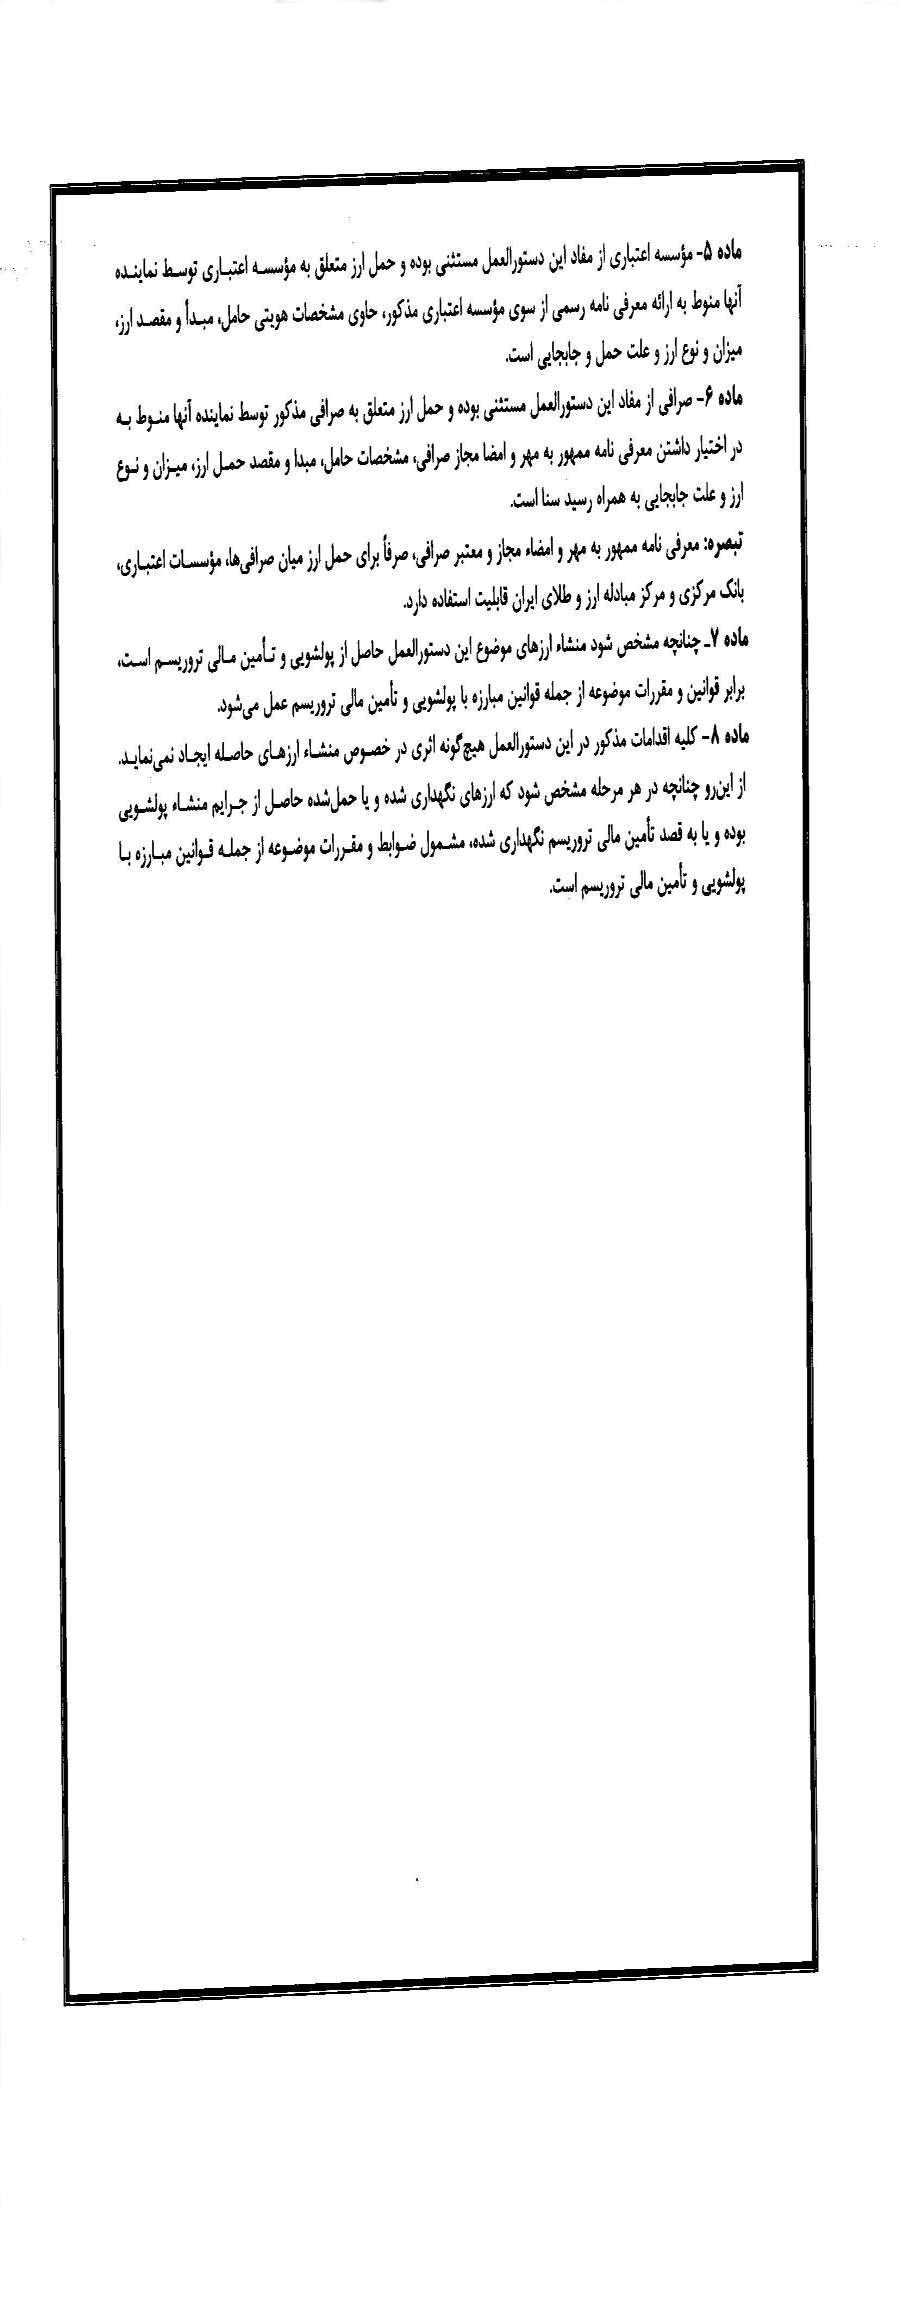 ماده ۵- مؤسسه اعتباری از مفاد این دستورالعمل مستثنی بوده و حمل ارز متعلق به مؤسسه اعتباری توسط نماینده
آنها منوط به ارائه معرفی نامه رسمی از سوی مؤسسه اعتباری مذکور، حاوی مشخصات هویتی حامل، مبدأ و مقصد ارز،
میزان و نوع ارز و علت حمل و جابجایی است.
ماده ۶- صرافی از مفاد این دستورالعمل مستثنی بوده و حمل ارز متعلق به صرافی مذکور توسط نماینده آنها منوط به
در اختیار داشتن معرفی نامه ممهور به مهر و امضا مجاز صرافی، مشخصات حامل، مبدا و مقصد حمل ارز، میزان و نوع
ارز و علت جابجایی به همراه رسید سنا است.
تبصره: معرفی نامه ممهور به مهر و امضاء مجاز و معتبر صرافی، صرفاً برای حمل ارز میان صرافی‌ها، مؤسسات اعتباری،
بانک مرکزی و مرکز مبادله ارز و طلای ایران قابلیت استفاده دارد.
ماده ۷ـ چنانچه مشخص شود منشاء ارزهای موضوع این دستورالعمل حاصل از پولشویی و تأمین مالی تروریسم است،
برابر قوانین و مقررات موضوعه از جمله قوانین مبارزه با پولشویی و تأمین مالی تروریسم عمل می‌شود.
ماده ۸- کلیه اقدامات مذکور در این دستورالعمل هیچ‌گونه اثری در خصوص منشاء ارزهای حاصله ایجاد نمی‌نماید.
از این‌رو چنانچه در هر مرحله مشخص شود که ارزهای نگهداری شده و یا حمل‌شده حاصل از جرایم منشاء پولشویی
بوده و یا به قصد تأمین مالی تروریسم نگهداری شده، مشمول ضوابط و مقررات موضوعه از جمله قوانین مبارزه با
پولشویی و تأمین مالی تروریسم است.